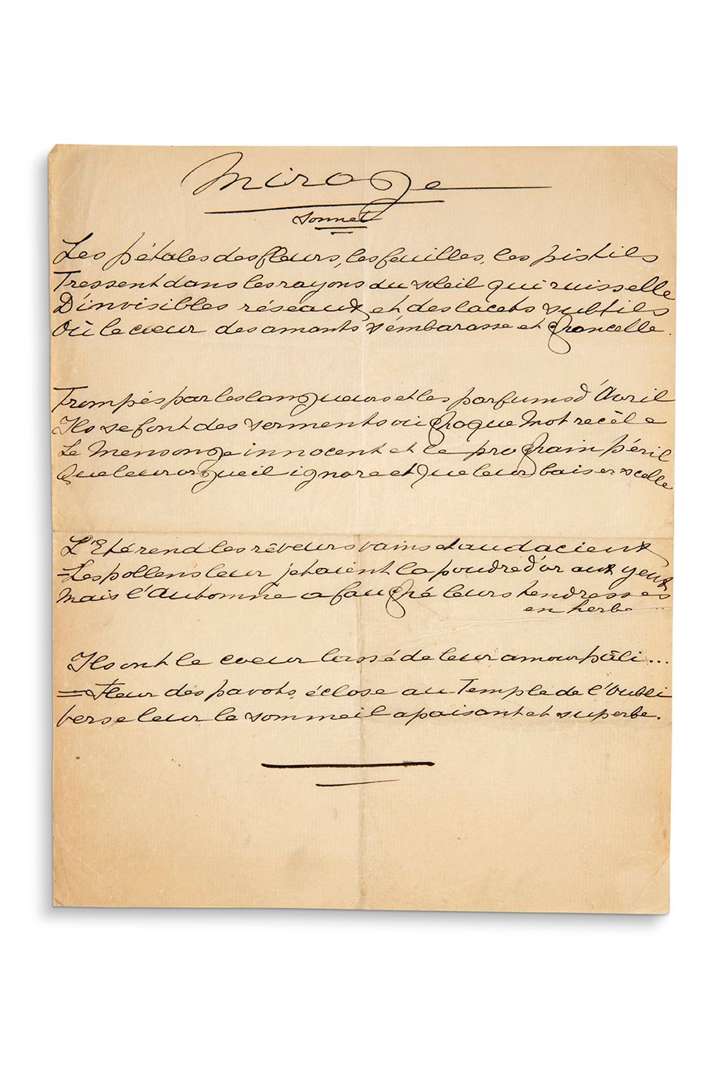 Mirage
Sonnet
Les pétales des fleurs, les feuilles, les pistils
Tressent dans les rayons du soleil qui ruisselle
D'invisibles réseaux et des lacets subtils
Où le cœur des amants s'embarasse et chancelle.
Trompés par les langueurs et les parfums d'Avril
Ils se font des serments où chaque mot recèle
Le Mensonge innocent et le prochain péril
Que leur orgueil ignore et que leur baiser scelle
L'Eté rend les rêveurs vains et audacieux
= Les pollens leur jetaient la poudre d'or aux yeux
Mais l'Automne a fauché leurs tendresses
en herbe
Ils ont le cœur lassé de leur amour pâli...
= Fleur des pavots, éclose au Temple de l'Oubli
Verse leur le sommeil apaisant et superbe.